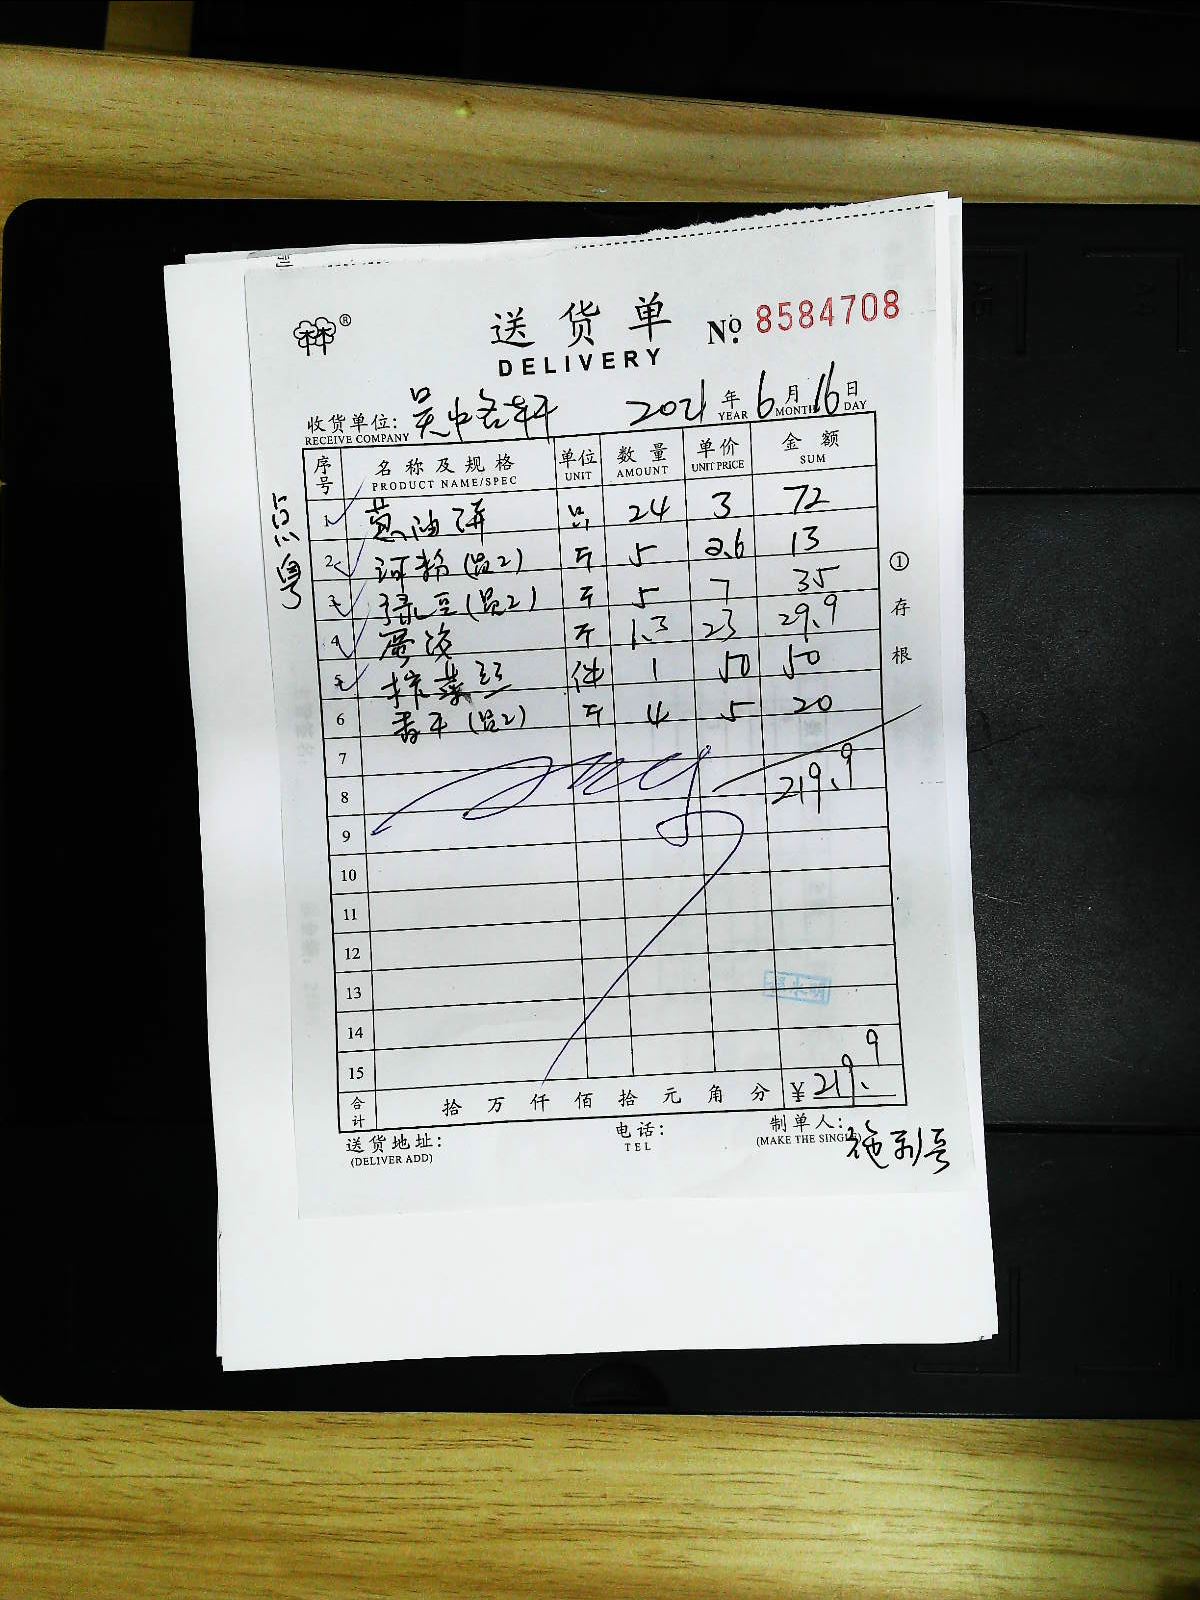 林®
送货单
DELIVERY
№ 8584708
收货单位: 吴中名轩 2021年 6月 16日
RECEIVE COMPANY YEAR MONTH DAY
序号 名称及规格 单位 数量 单价 金额
PRODUCT NAME/SPEC UNIT AMOUNT UNIT PRICE SUM
1 葱油饼 24 3 72
2 河粉(员2) 斤 5 2.6 13
3 绿豆(员2) 斤 5 7 35
4 斤 1.3 23 29.9
5 榨菜丝 件 1 50 50
6 香干(员2) 斤 4 5 20
7
8 219.9
9
10
11
12
13
14
15
合计 拾万仟佰拾元角分 ¥219.9
送货地址: 电话: 制单人:
(DELIVER ADD) TEL (MAKE THE SINGLE)
点粤
①存根